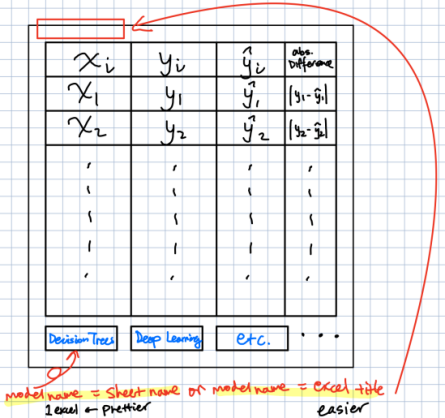 xᵢ yᵢ ŷᵢ abs. Difference
x₁ y₁ ŷ₁ |y₁-ŷ₁|
x₂ y₂ ŷ₂ |y₂-ŷ₂|
Decision Trees Deep Learning etc. ...
model name = sheet name or model name = excel title
1 excel ← prettier easier